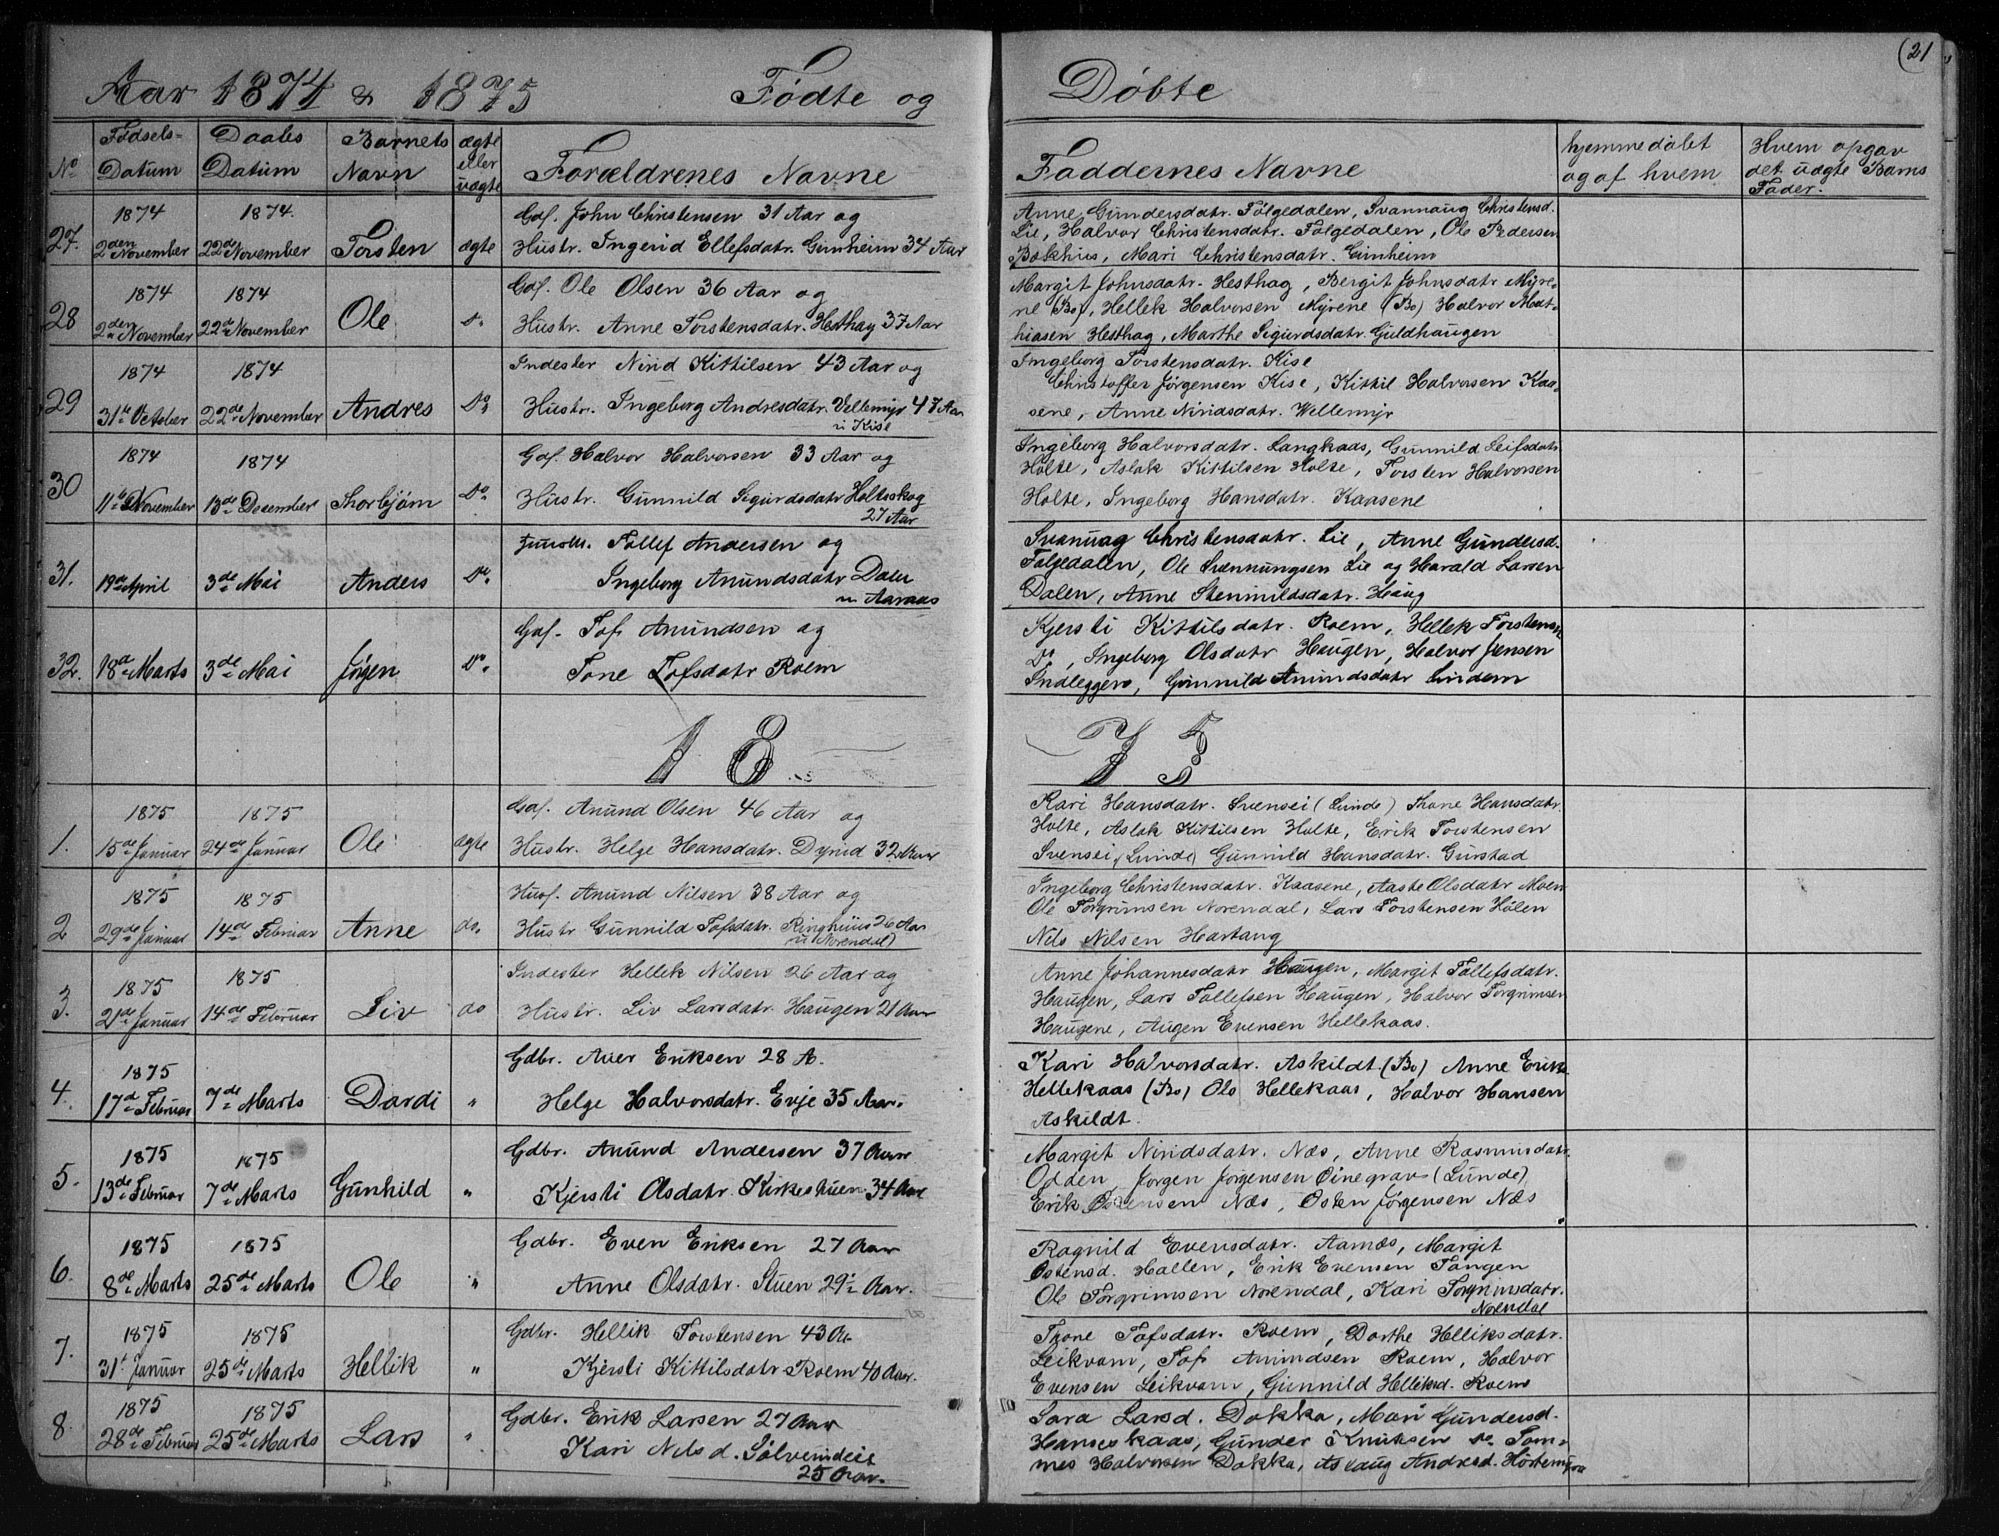 (21
Aar 1874 & 1875 Fødte og Døbte
No Fødsels-Datum Daabs Datum Barnets Navn ægte eller uægte Forældrenes Navne Faddernes Navne hjemmedøbt og af hvem Hvem opgav det uægte Barns Fader.
1874 1874. Gaf. John Christensen 31 Aar og
27. 2den November 22de November Torsten ægte Hustr. Ingerid Ellefsdatr. Gunheim 34 Aar
Anne Gundersdatr. Følgedalen, Svannaug Christensd.
Lie, Halvor Christensdatr. Følgedalen, Ole Pedersen
Bakhus, Mari Christensdatr. Gunheim
1874 1874 Gaf. Ole Olsen 36 Aar og
28 2den November 22de November Ole Do Hustr. Anne Torstensdatr. Hesthag 37 Aar
Margit Johnsdatr. Hesthag, Bergit Johnsdatr Myre-
ne (Bø), Hellek Halvorsen Myrene (Bø) Halvor Mat-
hiasen Hesthag, Marthe Sigurdsdatr. Guldhaugen
1874 1874 Inderster Nirid Kittilsen 43 Aar og
29 31te October 22de November Andres Do Hustr. Ingeborg Andresdatr. Vellemyr 47 Aar
u Kise
Ingeborg Torstensdatr. Kise
Christoffer Jørgensen Kise, Kittil Halvorsen Kaa-
sene, Anne Niridsdatr. Wellemyr
1874 1874 Gaf. Halvor Halvorsen 33 Aar og
30 11te November 13de Desember Thorbjørn Do Hustr. Gunnild Sigurdsdatr Holtsskog
27 Aar
Ingeborg Halvorsdatr. Langkaas, Gunnild Leifsdatr
Holte, Aslak Kittilsen Holte, Torsten Halvorsen
Holte, Ingeborg Hansdatr. Kaasene
Tollef Andersen og
31. 19de April 3de Mai Anders Do Ingeborg Anundsdatr Dalen
u Aaraas
Svanuag Christensdatr. Lie, Anne Gundersd.
Følgedalen, Ole Svennungsen Lie og Harald Larsen
Dalen, Anne Stenmildsdatr. Haug
Gaf. Tof Anundsen og
32. 18de Marts 3de Mai Jörgen Do Tone Tofsdatr Roem
Kjersti Kittilsdatr. Roem, Hellek Torstensen
Do, Ingeborg Olsdatr Haugen, Halvor Jensen
Indleggen, Gunnild Anundsdatr Lindem
18 75
1875 1875 Gaf. Anund Olsen 46 Aar og
1. 15de Januar 24de Januar Ole ægte Hustr. Helge Hansdatr. Dynid 32 Aar
Kari Hansdatr. Svensei (Lunde) Thone Hansdatr.
Holte, Aslak Kittilsen Holte, Erik Torstensen
Svensei (Lunde) Gunnild Hansdatr. Gurstad
1875 1875 Husf. Anund Nilsen 38 Aar og
2 29de Januar 14de Februar Anne do. Hustr Gunnild Tofsdatr. Ringhuus 26 Aar
u Norendal)
Ingeborg Christensdatr. Kaasene, Aaste Olsdatr Moen
Ole Torgrimsen Norendal, Lars Torstensen Hølen
Nils Nilsen Hartang
1875 1875 Inderster Hellek Nilsen 26 Aar og
3. 21de Januar 14de Februar Liv do Hustr. Liv Larsdatr. Haugen 21 Aar
Anne Johannesdatr Haugen, Margit Tollefsdatr.
Haugen, Lars Tollefsen Haugen, Halvor Torgrimsen
Haugene, Augen Evensen Hellekaas.
1875 Gdbr. Aver Eriksen 28 A.
4. 17de Februar 7de Marts Dardi " Helge Halvorsdatr. Evje 35 Aar.
Kari Halvorsdatr. Askildt (Bø) Anne Eriks
Hellekaas (Bø) Ole Hellekaas, Halvor Hansen
Askildt.
1875 1875 Gdbr. Anund Andersen 37 Aar
5. 13de Februar 7de Marts Gunhild " Kjersti Olsdatr. Kirkestuen 34 Aar
Margit Niridsdatr. Næs, Anne Rasmusdatr.
Odden, Jorgen Jørgensen Øinegrav (Lunde)
Erik Østensen Næs, Østen Jørgensen Næs
1875 1875 Gdbr. Even Eriksen 27 Aar
6. 8de Marts 25de Marts Ole " Anne Olsdatr. Stuen 29 Aar.
Ragnild Evensdatr. Aarnæs, Margit
Østensd. Hallen, Erik Evensen Tangen
Ole Torgrimsen Norendal, Kari Torgrimsdatr.
Norendal
1875 1875 Gdbr. Hellik Torstensen 43 Aar
7. 31t Januar 25de Marts Hellik " Kjersti Kittilsdatr Roem 40 Aar.
Thone Tofsdatr. Roem, Dorthe Helliksdatr.
Leikvam, Tof Anundsen Roem, Halvor
Evensen Leikvam, Gunnild Helliksd. Roem
1875 1875 Gdbr. Erik Larsen 27 Aar
8. 28de Februar 25de Marts Lars " Kari Nilsd. Solvemdeie
25 Aar.
Sara Larsd. Dokka, Mari Gundersd.
Hanseskaas, Gunder Knutsen Do. Tom-
mes Halvorsen Dokka, Aslaug Andresd.